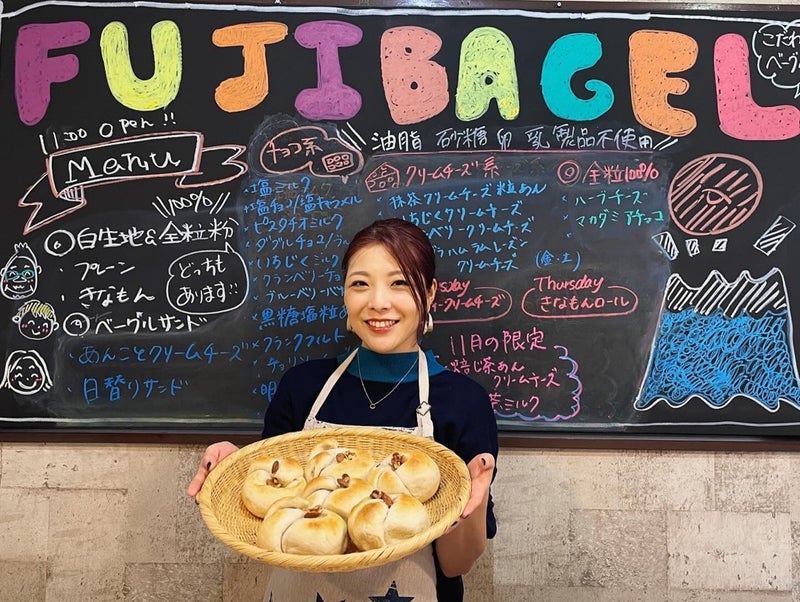 FUJIBAGEL
こだわ
ベーグル
Do Open!!
Menu
100%
白生地&全粒粉
・プレーン
・きなもん
どっちも
あります!!
ベーグルサンド
・あんことクリームチーズ
・日替りサンド
チョコ系
・塩ミルク
・塩チョコ/塩キャラメル
・ピスタチオミルク
・ダブルチョコ/
・いちじくミルク
・クランベリーチョ
・ブルーベリー
・黒糖塩粒あ
・フランクフルト
・チョリソ
・明
油脂 砂糖 卵 乳製品不使用
クリームチーズ系
・抹茶クリームチーズ粒あん
いちじくクリームチーズ
ベリークリームチーズ
ラハムラムレーズン
クリームチーズ
(金・土)
sday
クリームチーズ
Thursday
きなもんロール
全粒100%
・ハーブチーズ
・マカダミアチョコ
11月の限定
焙じ茶あん
クリームチーズ
茶ミルク